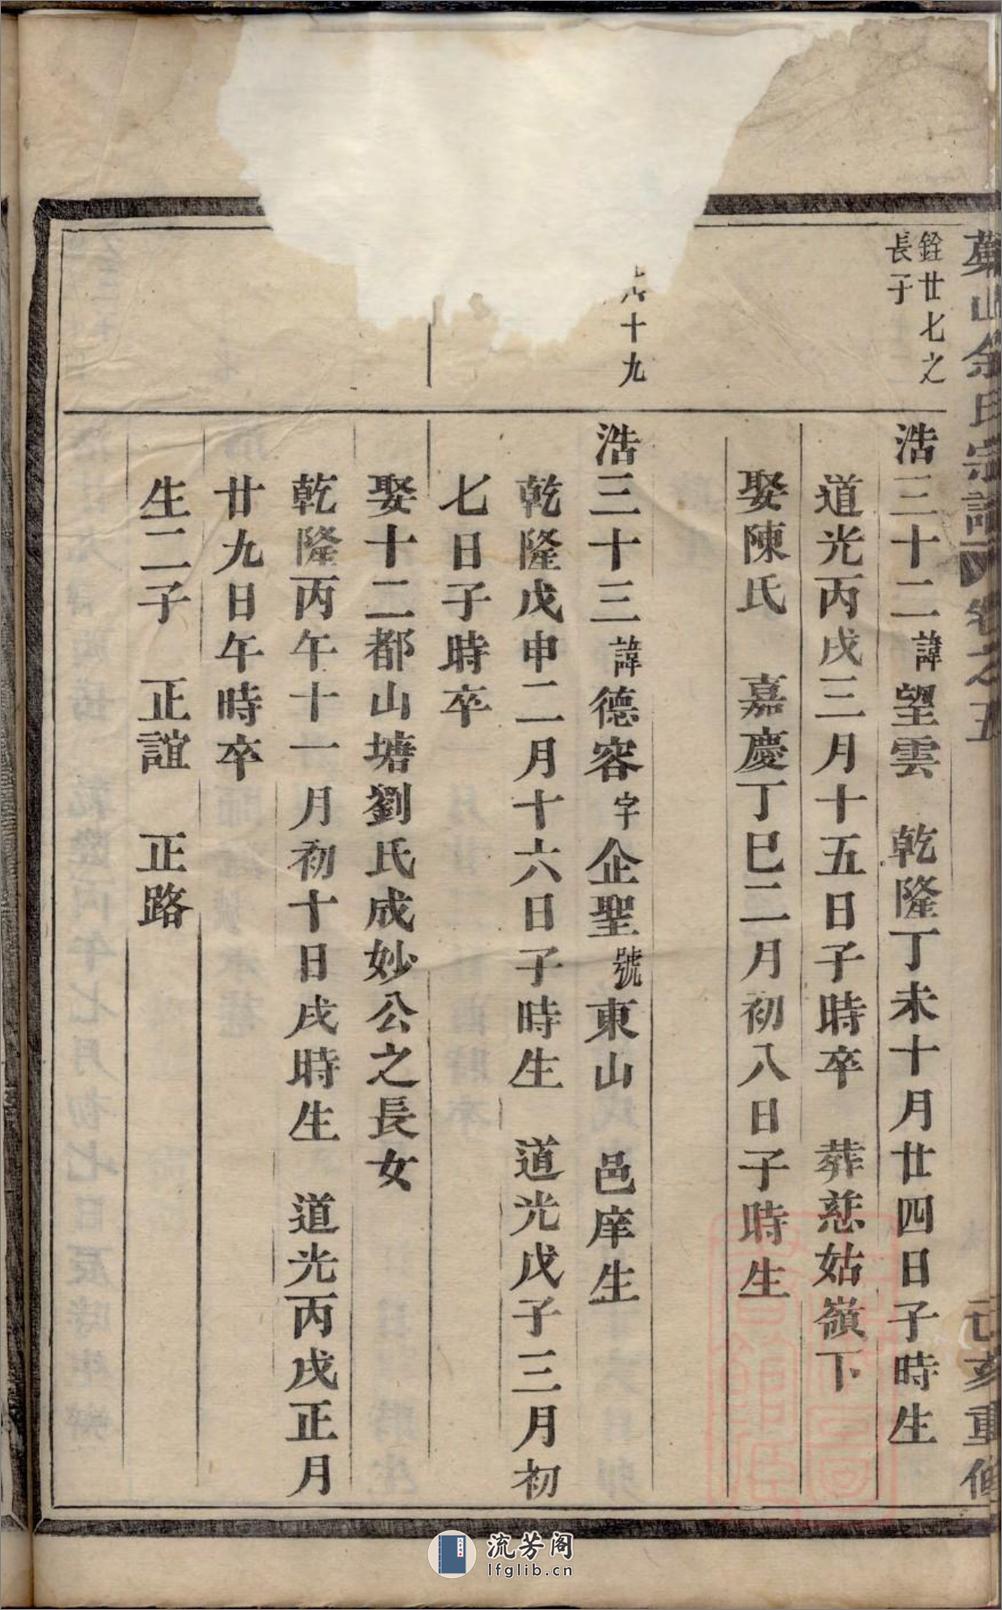 山余氏宗譜 卷之五 己亥重修
銓廿七之
長子
浩三十二 諱望雲 乾隆丁未十月廿四日子時生
道光丙戌三月十五日子時卒 葬慈姑嶺下
娶陳氏 嘉慶丁巳二月初八日子時生
十九
浩三十三 諱德容 字企聖 號東山 邑庠生
乾隆戊申二月十六日子時生 道光戊子三月初
七日子時卒
娶十二都山塘劉氏成妙公之長女
乾隆丙午十一月初十日戌時生 道光丙戌正月
廿九日午時卒
生二子 正誼 正路
流芳阁
lfglib.cn